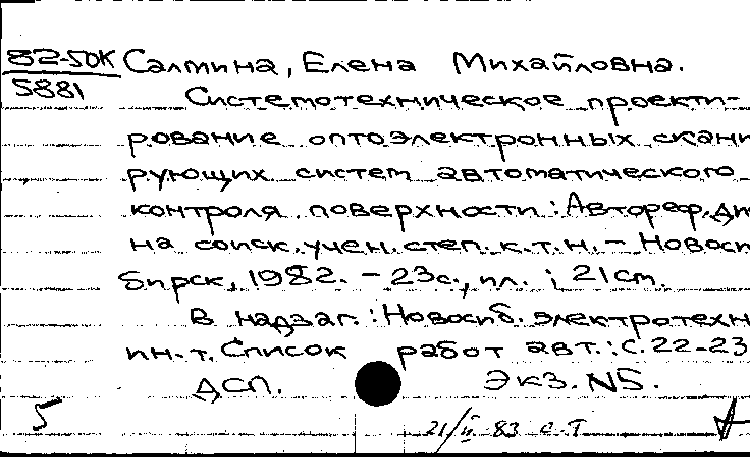 82-50К Салтина, Елена Михайловна.
5881
Системотехническое проекти-
рование оптоэлектронных скани
рующих систем автоматического
контроля поверхности: Автореф. ди
на соиск. учен. степ. к.т.н. – Новоси
бирск, 1982. – 23с., ил. ; 21 см.
В надзаг.: Новосиб. электротехн
ин-т. Список работ авт.: с. 22-23
ДСП. Экз. N5.
5
21/II 83 с-т